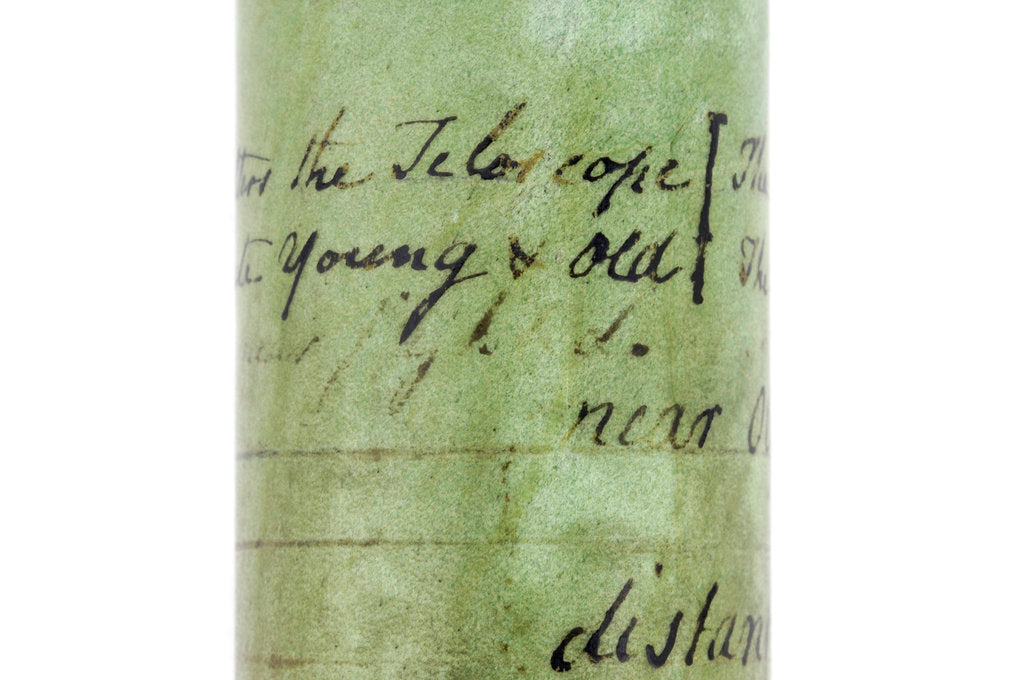 the Telescope [ The
Young & Old The
near
distan